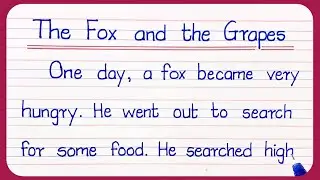 The Fox and the Grapes
One day, a fox became very
hungry. He went out to search
for some food. He searched high